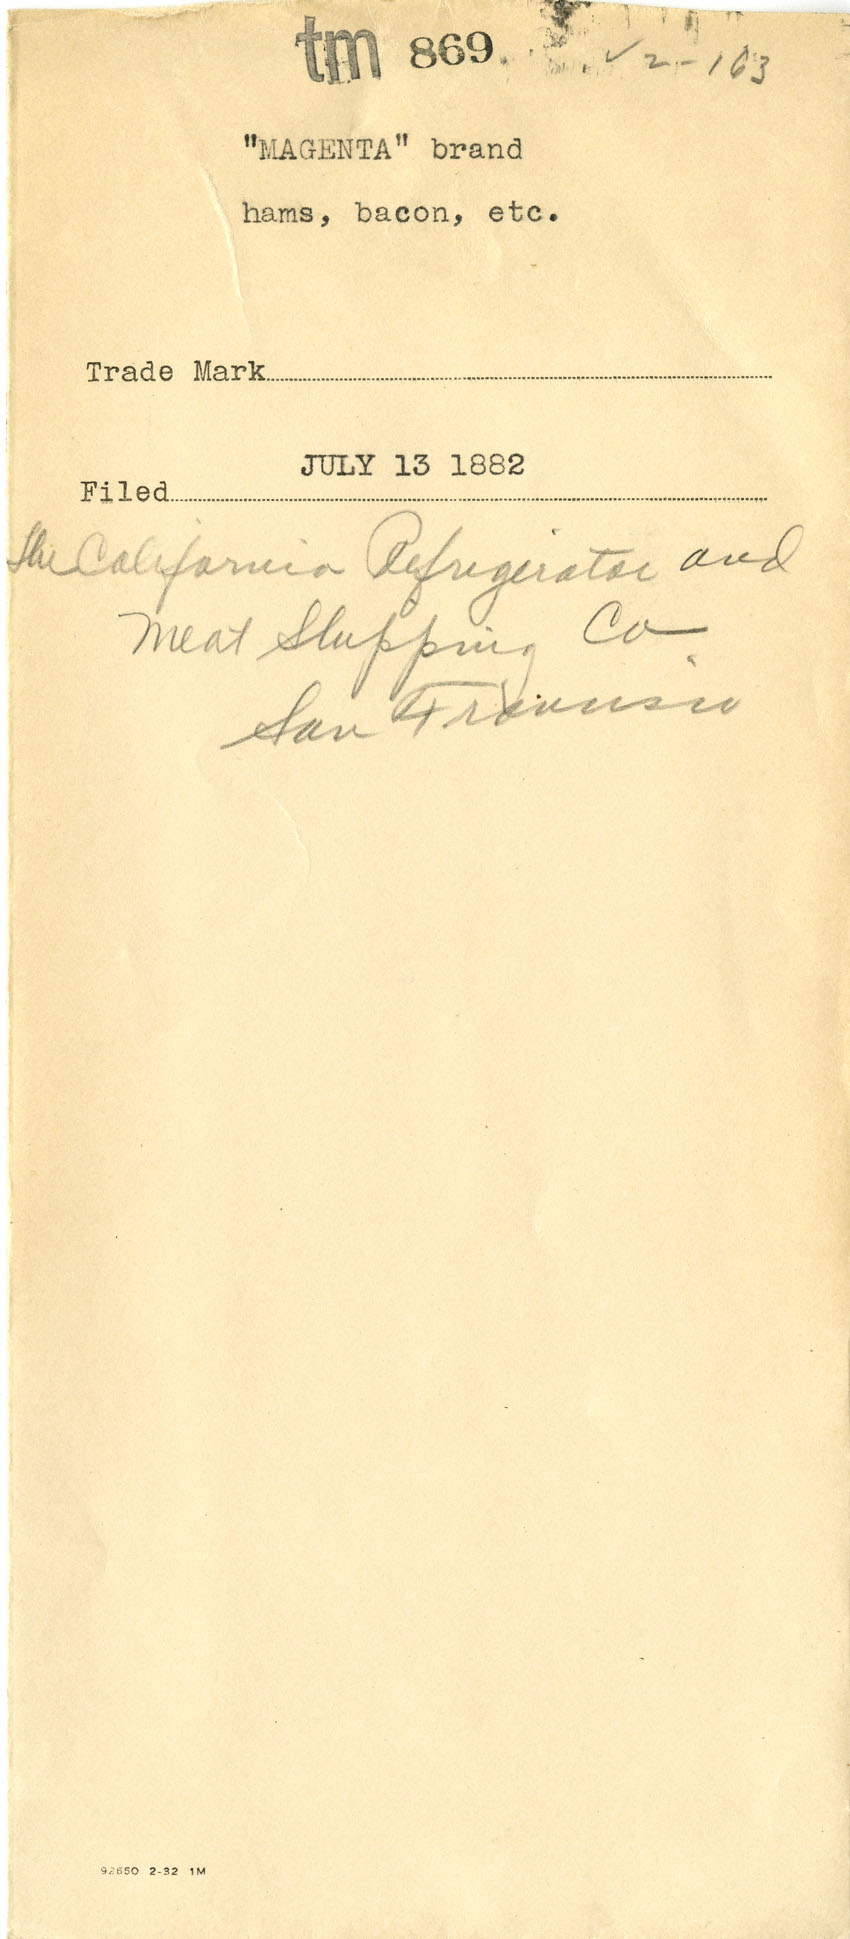 tm 869. ✓2-163
"MAGENTA" brand
hams, bacon, etc.
Trade Mark
JULY 13 1882
Filed
The California Refrigerator and
Meat Shipping Co.
San Francisco
92650 2-32 1M